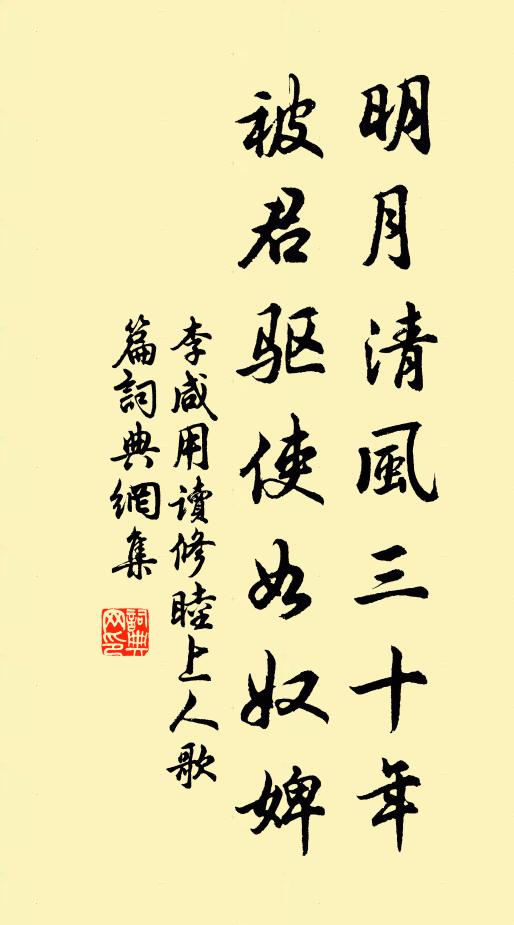 明月清風三十年
被君驱使如奴婢
李咸用讀修睦上人歌
篇詞典網集
詞典网印